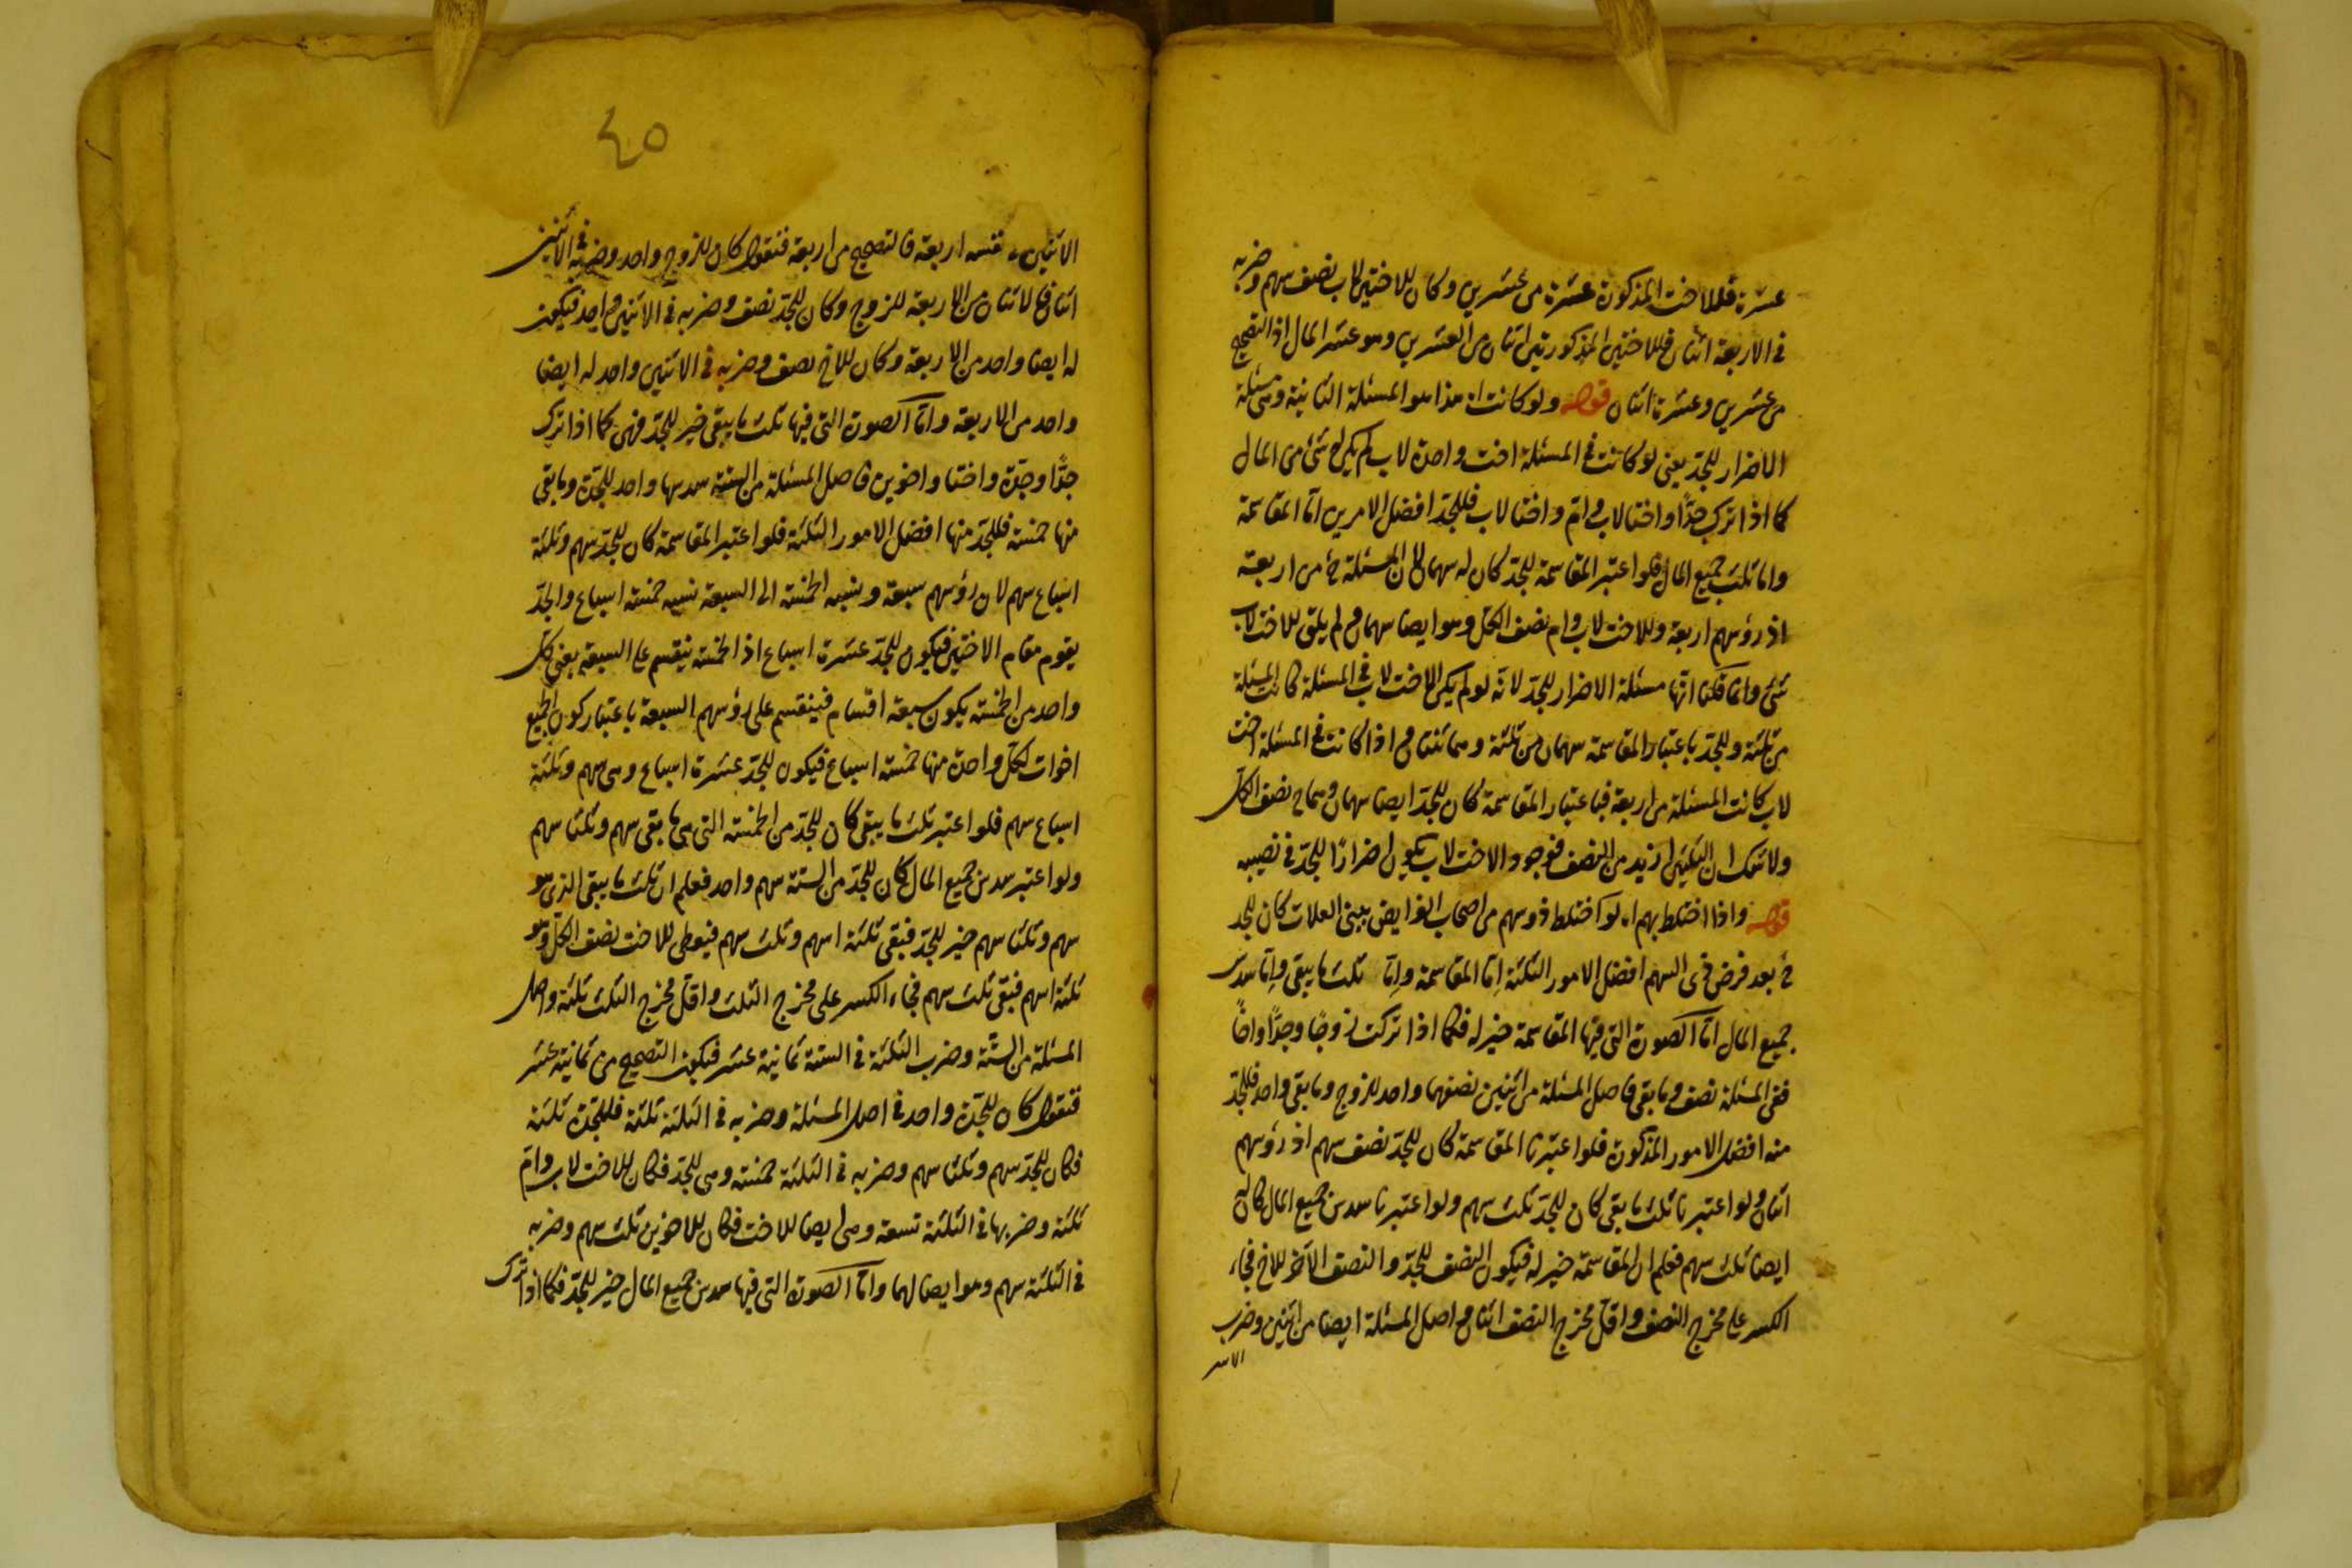 عشرة فللاخت المذكورة عشرة من عشرين وكان للاختين لاب نصف سهم وضربه
في الاربعة اثنان فللاختين المذكورتين اثنان من العشرين وهو عشر المال اذ التصحيح
من عشرين وعشرة اثنان قوله ولو كانت اه هذا هو المسئلة الثانية وهى مسئلة
الاضرار للجد يعنى لو كانت في المسئلة اخت واحدة لاب لم يكن له شئ من المال
كما اذا ترك جدًّا واختا لاب وام واختا لاب فللجد افضل الامرين امّا المقاسمة
واما ثلث جميع المال فلو اعتبر المقاسمة للجد كان له سهمان لان المسئلة ح من اربعة
اذ رؤسهم اربعة وللاخت لاب وام نصف الكل وهو ايضا سهمان ولم يبق للاخت لاب
شئ وانما قلنا انّها مسئلة الاضرار للجد لانه لو لم يكن الاخت لاب في المسئلة كانت المسئلة
من ثلثة وللجد باعتبار المقاسمة سهمان من ثلثة وهما ثلثان و اذا كانت في المسئلة اخت
لاب كانت المسئلة من اربعة فباعتبار المقاسمة كان للجد ايضا سهمان وهما ح نصف الكل
ولا شك ان الثلثين ازيد من النصف فوجود الاخت لاب يكون اضرارًا للجد في نصيبه
قوله واذا اختلط بهم اه لو اختلط ذو سهم من اصحاب الفرايض ببنى العلات كان للجد
ح بعد فرض ذى السهم افضل الامور الثلثة اِمّا المقاسمة وامّا ثلث ما يبقى وامّا سدس
جميع المال امّا الصورة التى فيها المقاسمة خير له فكما اذا تركت زوجًا وجدًّا واخًا
ففى المسئلة نصف وما بقى فاصل المسئلة من اثنين نصفهما واحد للزوج وما بقى واحد فللجد
منه افضل الامور المذكورة فلو اعتبرنا المقاسمة كان للجد نصف سهم اذ رؤسهم
اثنان ولو اعتبرنا ثلث ما بقى كان للجد ثلث سهم ولو اعتبرنا سدس جميع المال كان له
ايضا ثلث سهم فعلم ان المقاسمة خير له فيكون النصف للجد والنصف الآخر للاخ فجاء
الكسر على مخرج النصف واقل مخرج النصف اثنان واصل المسئلة ايضا من اثنين وضرب
٤٥
الاثنين اربعة فالتصحيح من اربعة فنقول كان للزوج واحد وضربه في الاثنين
اثنان فالاثنان من الاربعة للزوج وكان للجد نصف وضربه في الاثنين واحد فيكون
له ايضا واحد من الاربعة وكان للاخ نصف وضربه في الاثنين واحد له ايضا
واحد من الاربعة وامّا الصورة التى فيها ثلث ما يبقى خير للجد فهى كما اذا ترك
جدًّا وجدّة واختا واخوين فاصل المسئلة من الستة سدسها واحد للجدة وما بقى
منها خمسة فللجد منها افضل الامور الثلثة فلو اعتبر المقاسمة كان للجد سهم وثلثة
اسباع سهم لان رؤسهم سبعة ونسبة الخمسة الى السبعة نسبة خمسة اسباع والجد
يقوم مقام الاختين فيكون للجد عشرة اسباع اذ الخمسة ينقسم على السبعة يعنى كل
واحد من الخمسة يكون سبعة اقسام فينقسم على رؤسهم السبعة باعتبار كون الجميع
اخوات لكل واحدة منها خمسة اسباع فيكون للجد عشرة اسباع وهى سهم وثلثة
اسباع سهم فلو اعتبر ثلث ما يبقى كان للجد من الخمسة التى هى ما بقى سهم وثلثا سهم
ولو اعتبر سدس جميع المال كان للجد من الستة سهم واحد فعلم ان ثلث ما يبقى الذى هو
سهم وثلثا سهم خير للجد فبقى ثلثة اسهم وثلث سهم فيعطى للاخت نصف الكل وهو
ثلثة اسهم فبقى ثلث سهم فجاء الكسر على مخرج الثلث واقل مخرج الثلث ثلثة واصل
المسئلة من الستّة وضرب الثلثة في الستة ثمانية عشر فيكون التصحيح من ثمانية عشر
فنقول كان للجدة واحد في اصل المسئلة وضربه في الثلثة ثلثة فللجدة ثلثة
فكان للجد سهم وثلثا سهم وضربه في الثلثة خمسة وهى للجد فكان للاخت لاب وامّ
ثلثة وضربها في الثلثة تسعة وهى ايضا للاخت فكان للاخوين ثلث سهم وضربه
في الثلثة سهم وهو ايضا لهما وامّا الصورة التى فيها سدس جميع المال خير للجد فكما اذا ترك